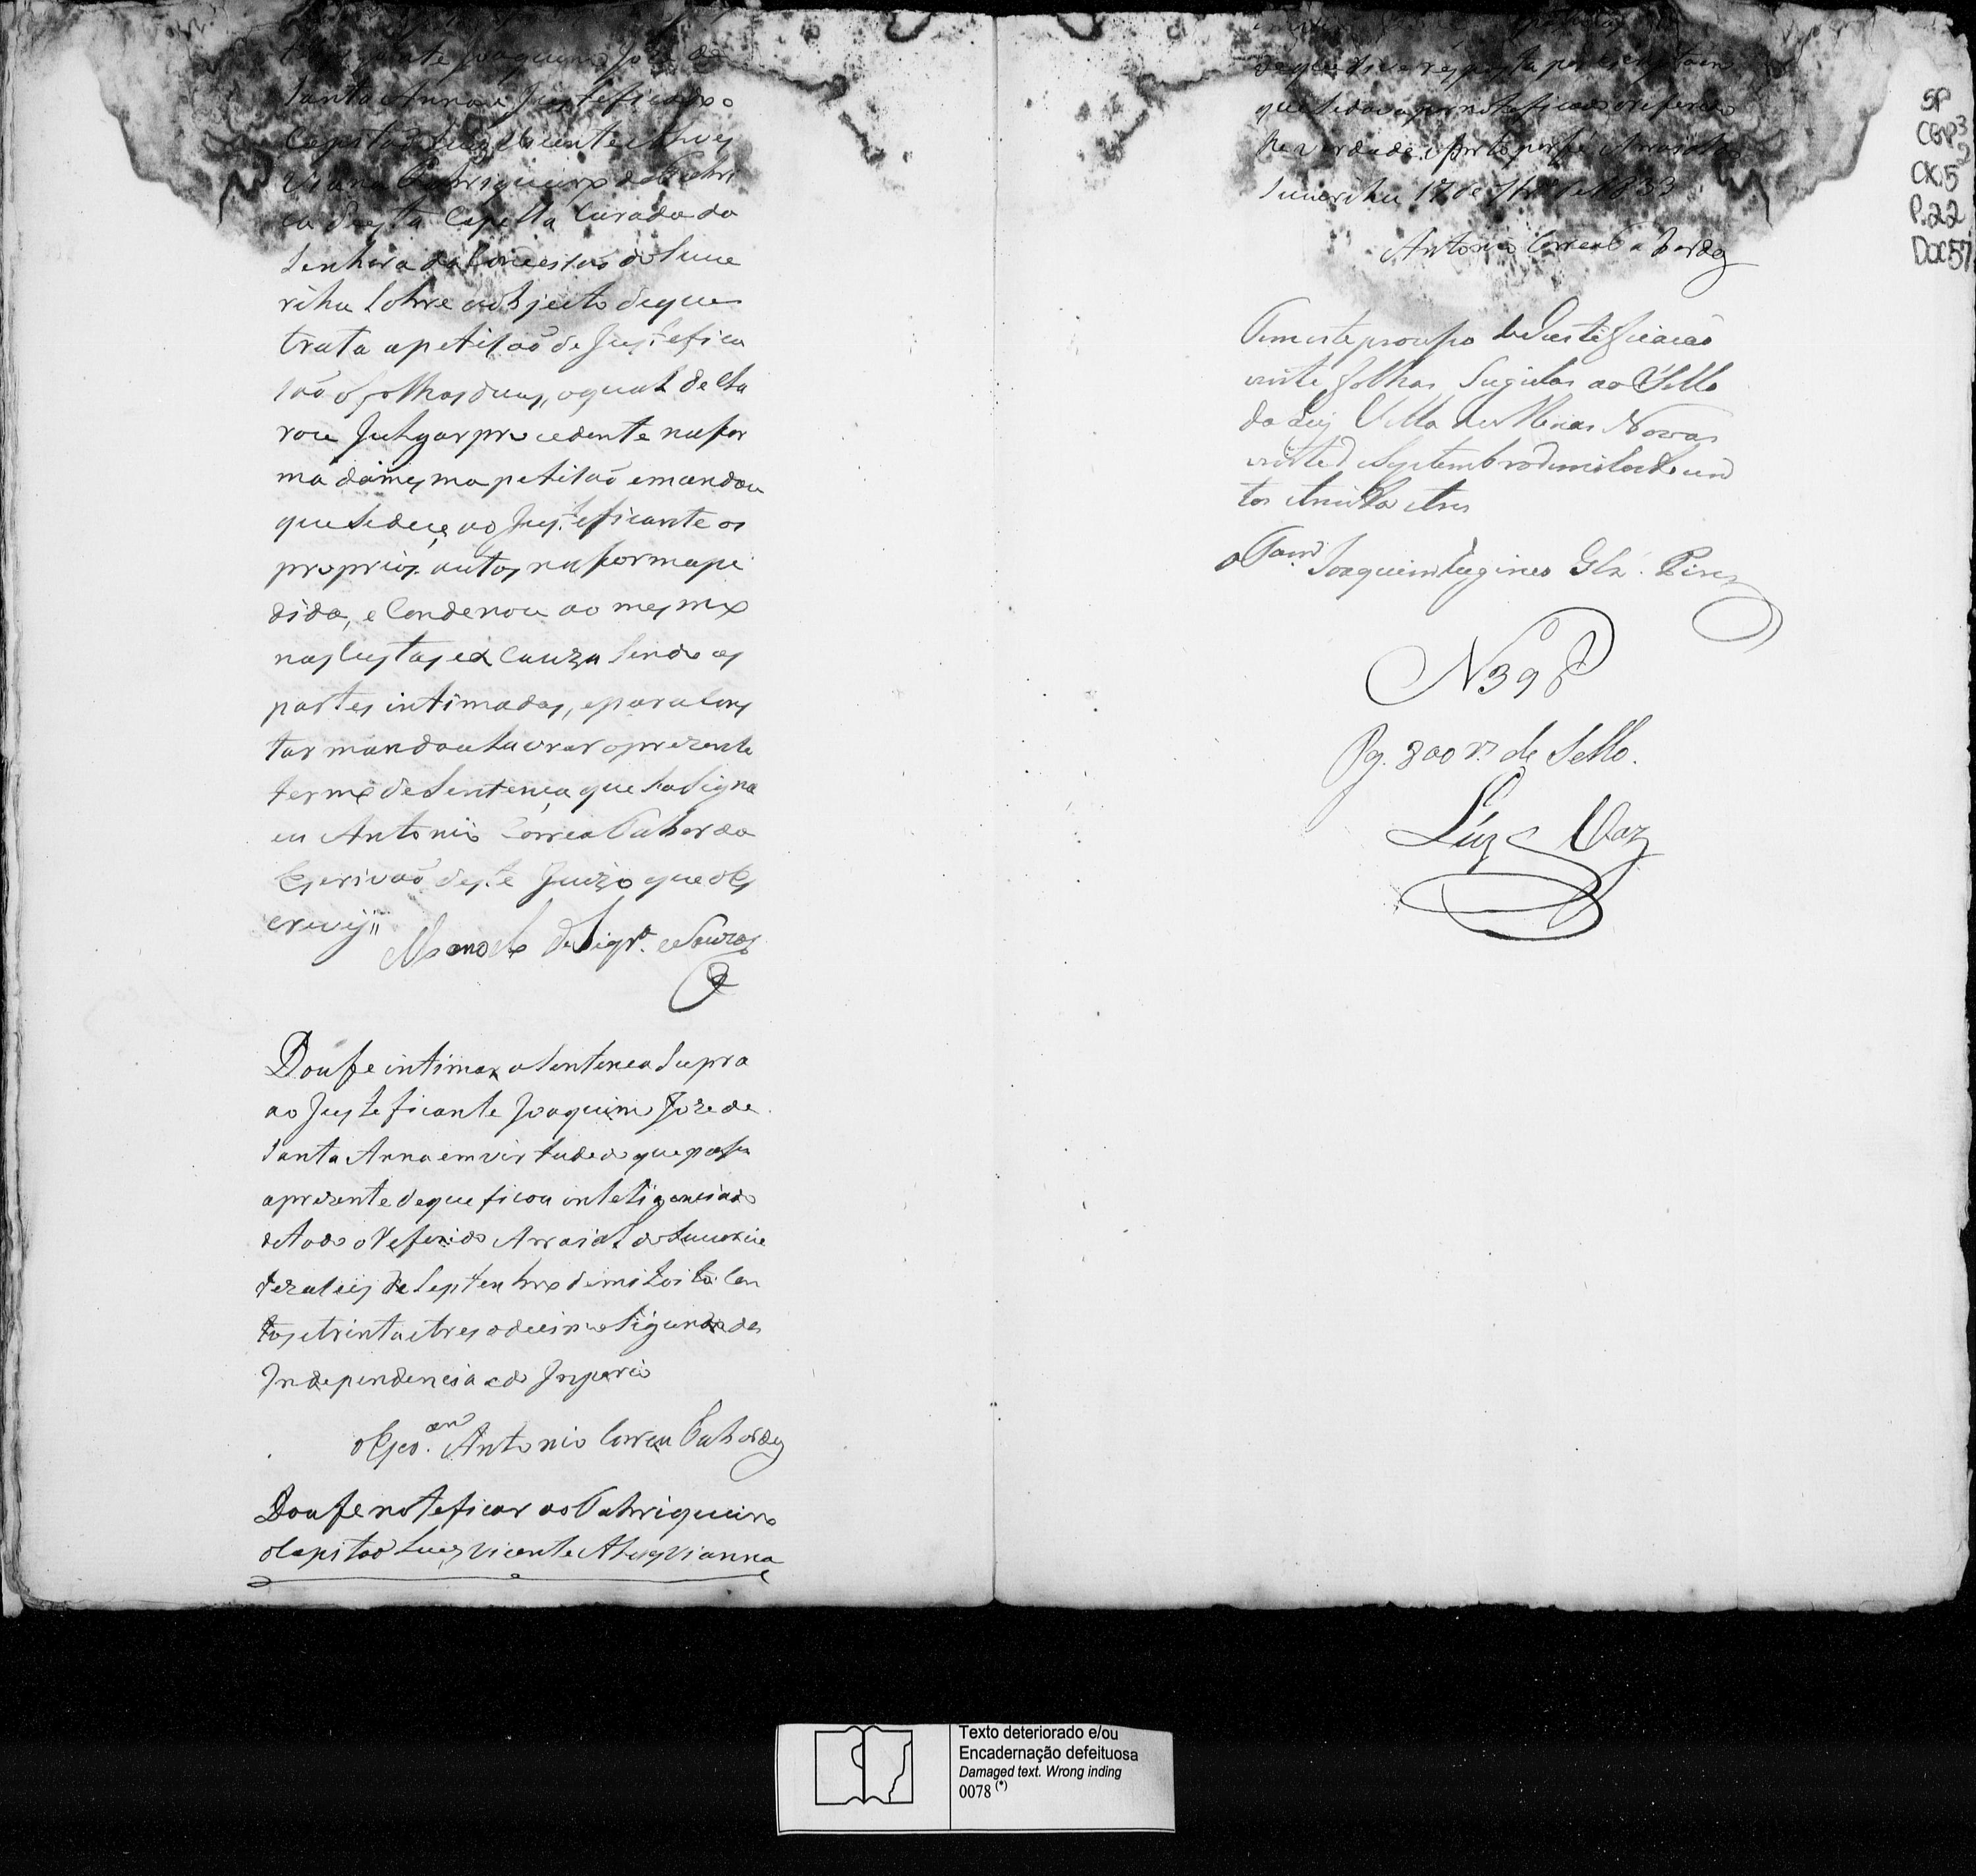 Joaquim Joze de
Santa Anna e Justeficado o
Capitão Luiz Vicente Alves
Vianna Fabriqueiro da Fabri
ca desta Capella Curada da
Senhora da Conceisão do Sucu
rihu sobre o objecto de que
trata a petisaõ de Justefica
saõ a folhas duas, o qual decla
rou Julgar procedente na for
ma da mesma petisaõ e mandou
que se dece ao Justeficante os
proprios autos na forma pe
dida, e Condenou ao mesmo
nas custas ex Cauza sendo as
partes intimadas, e para cons
tar mandou lavrar o prezente
termo de Sentença que asigna
eu Antonio Correa Taborda
Escrivaõ deste Juizo que o es
crevy
Manoel de Siqr.ª e Souza
Dou fe intimar a Sentenca Supra
ao Justeficante Joaquim Joze de
Santa Anna em virtude do que pasei
a prezente de que ficou inteligenciado
de todo o Referido Arraial do Sucuriu
dezaseis de Septenbro de mil oito cen
tos e trinta e tres o decimo Sigundo da
Independencia e do Inperio
o Esc.am Antonio Correa Taborda
Dou fe noteficar ao Fabriqueiro
o Capitaõ Luis Vicente Alves Vianna
de que dice resposta por escripta em
que se dava por noteficado o referido
he verdade e porto por fé Arraial do
Sucurihu 17 de 7br.º de 1833
Antonio Correa Taborda
Tem este proceso de Justificacaõ
vinte folhas Sugeitas ao Sello
da Lei Villa de Minas Novas
vinte de Septembro de mil oito cen
tos e trinta e tres
o Tam. Joaquim Eugineo Glz. Pires
N 398
Pg. 800 r.s de Sello.
Luz Vaz
SP
CGP3
CX:5
P.22
DOC57
Texto deteriorado e/ou
Encadernação defeituosa
Damaged text. Wrong inding
0078 (*)